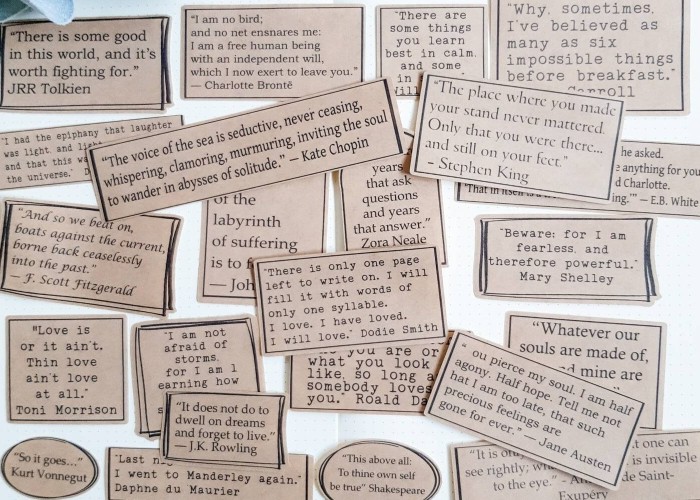 "There is some good
in this world, and it's
worth fighting for."
JRR Tolkien
"I am no bird;
and no net ensnares me:
I am a free human being
with an independent will,
which I now exert to leave you."
— Charlotte Brontë
"There are
some things
you learn
best in calm,
and some
in
"Why, sometimes,
I've believed as
many as six
impossible things
before breakfast."
Carroll
"I had the epiphany that laughter
was light, and
and that this
the universe."
"The voice of the sea is seductive, never ceasing,
whispering, clamoring, murmuring, inviting the soul
to wander in abysses of solitude." — Kate Chopin
"The place where you made
your stand never mattered.
Only that you were there...
and still on your feet."
- Stephen King
he asked.
anything for you
d Charlotte.
"That in itself
ing.'" — E.B. White
"And so we beat on,
boats against the current,
borne back ceaselessly
into the past."
— F. Scott Fitzgerald
of the
labyrinth
of suffering
is to
— Joh
years
that ask
questions
and years
that answer."
Zora Neale
"Beware: for I am
fearless, and
therefore powerful."
Mary Shelley
"There is only one page
left to write on. I will
fill it with words of
only one syllable.
I love. I have loved.
I will love." Dodie Smith
"Love is
or it ain't.
Thin love
ain't love
at all."
Toni Morrison
"I am not
afraid of
storms,
for I am l
earning how
"It does not do to
dwell on dreams
and forget to live."
— J.K. Rowling
you are or
what you look
like, so long a
somebody loves
you." Roald Da
"Whatever our
souls are made of,
mine are
ou pierce my soul. I am half
agony. Half hope. Tell me not
hat I am too late, that such
precious feelings are
gone for ever." — Jane Austen
"So it goes..."
Kurt Vonnegut
"Last
I went to Manderley again."
Daphne du Maurier
"This above all:
To thine own self
be true" Shakespeare
"It is
t one can
see rightly;
is invisible
to the eye." - An
de Saint-
Exupé